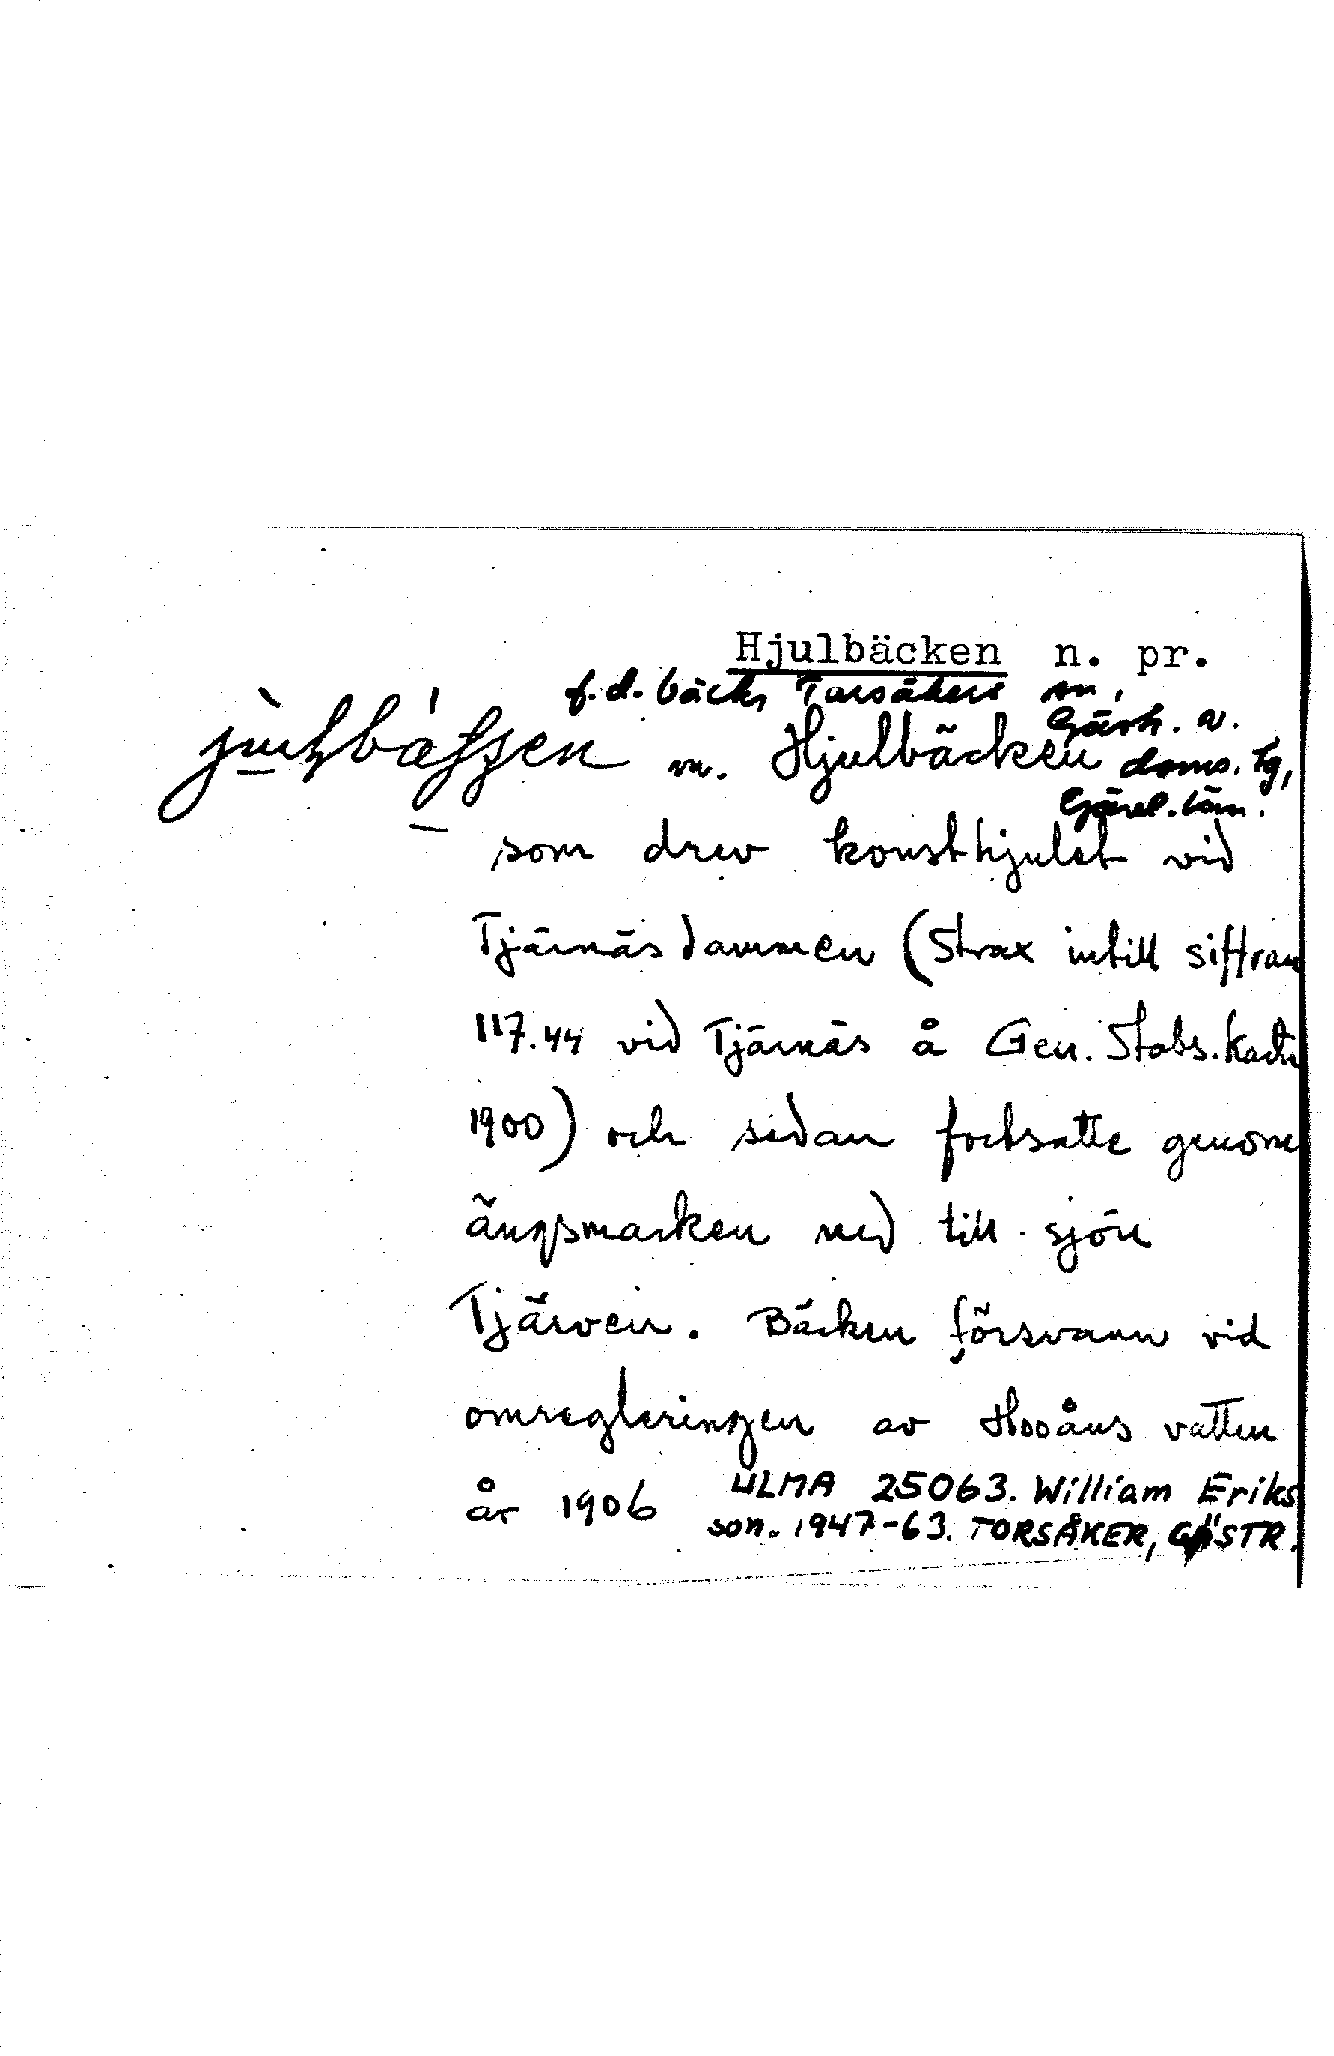 Hjulbäcken n. pr.
f.d. bäck, Torsåkers sn,
Gästr. v.
m. Hjulbäcken doms. tg,
Gävl. län.
som drev konsthjulet vid
Tjärnäsdammen (Strax intill siffran
117.44 vid Tjärnäs å Gen. Stabs.kartn
1900) och sedan fortsatte genom
ängsmarken ned till sjön
Tjärven. Bäcken försvann vid
omregleringen av Hooåns vatten
år 1906 ULMA 25063. William Eriks
son. 1947-63. TORSÅKER, GÄSTR.